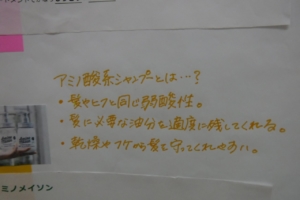 アミノ酸系シャンプーとは…？
・髪やヒフと同じ弱酸性。
・髪に必要な油分を適度に残してくれる。
・乾燥やフケから髪を守ってくれやすい。
ミノメイソン